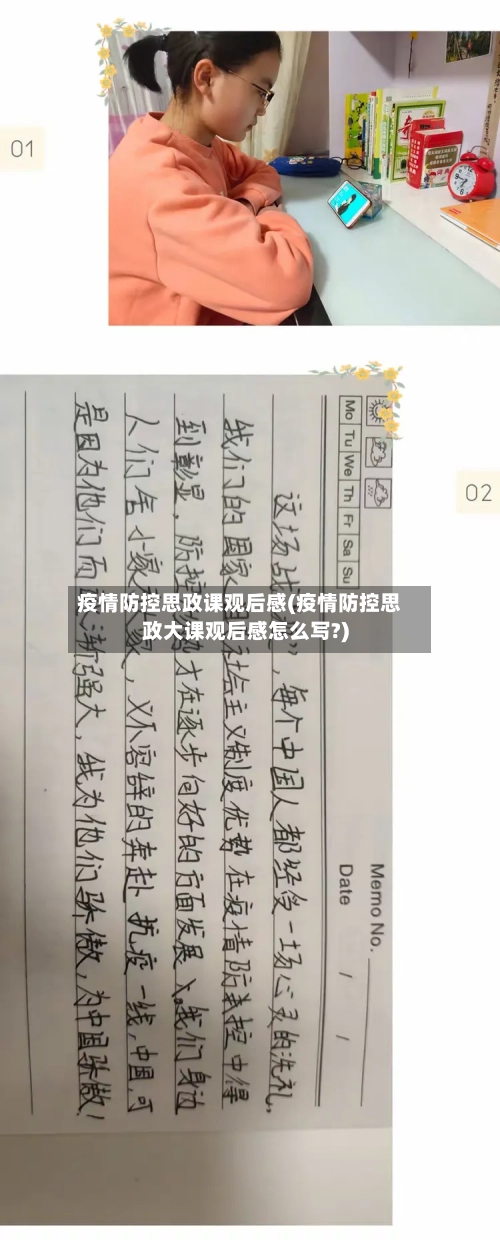 01
02
Mo Tu We Th Fr Sa Su
Memo No.
Date / /
这场战 ”,每个中国人都经受一场心灵的洗礼。
我们的国家 社会主义制度优势在疫情防控中得
到彰显,防控 才在逐步向好的方面发展。我们身边
人们舍小家 家,义不容辞的奔赴抗疫一线,中国可
是因为他们而 渐强大,我为他们骄傲,为中国骄傲!
疫情防控思政课观后感(疫情防控思
政大课观后感怎么写?)